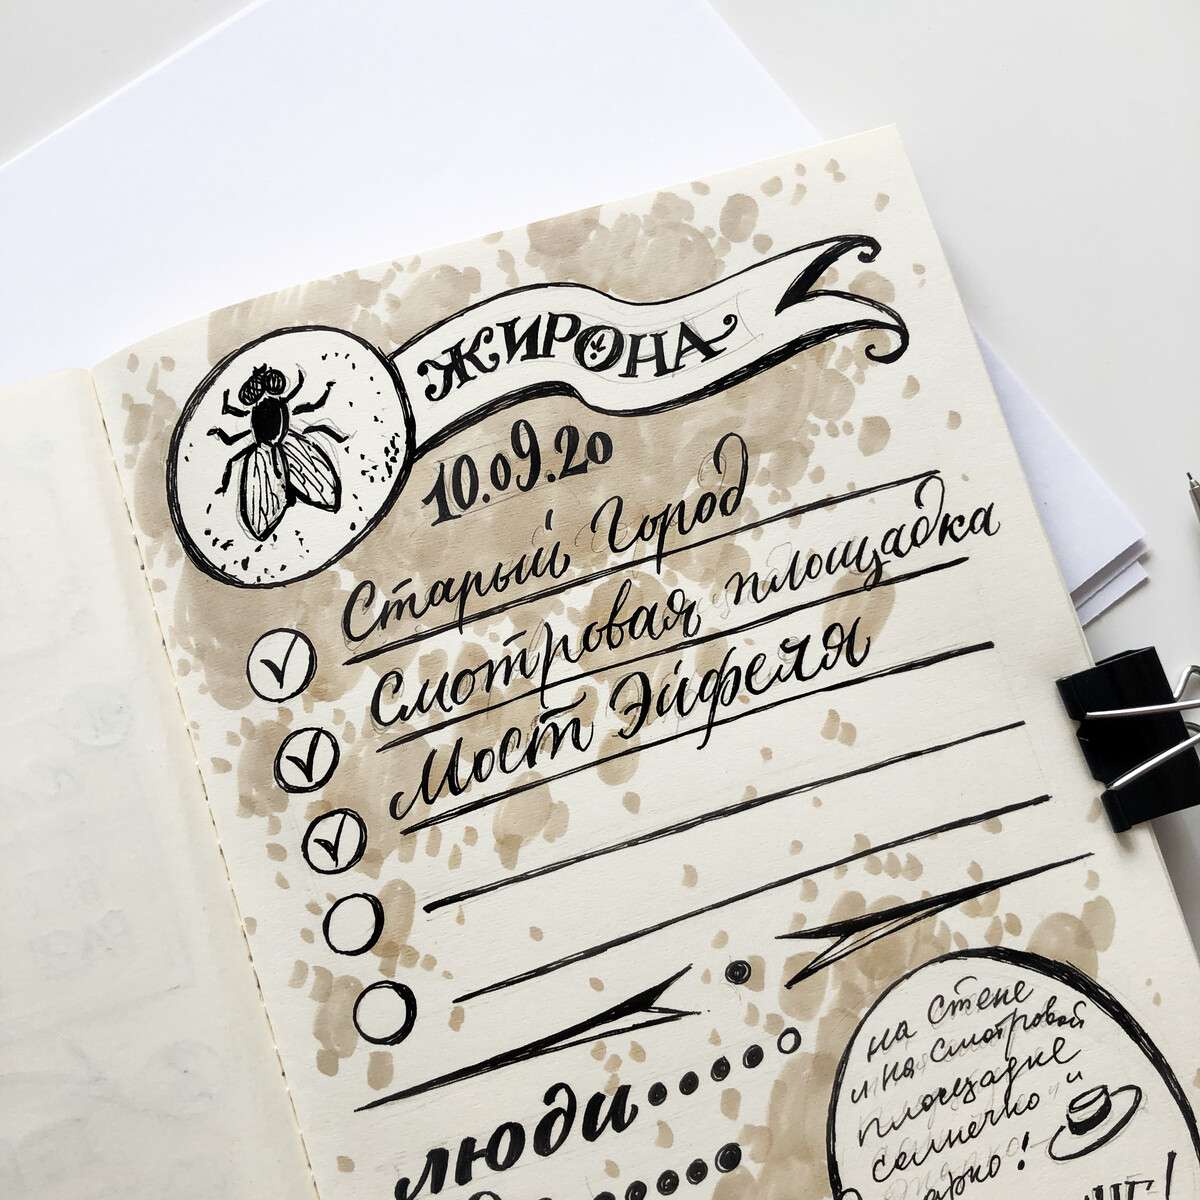 ЖИРОНА
10.09.20
Старый Город
Смотровая площадка
Мост Эйфеля
люди
на стене
и на смотровой
площадке
солнечно и
жарко!